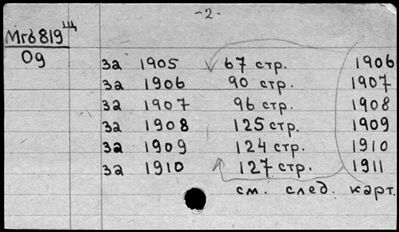 -2-
Мгб819щ
Од
за 1905 67 стр. 1906
за 1906 90 стр. 1907
за 1907 96 стр. 1908
за 1908 125 стр. 1909
за 1909 124 стр. 1910
за 1910 127 стр. 1911
см. след. карт.